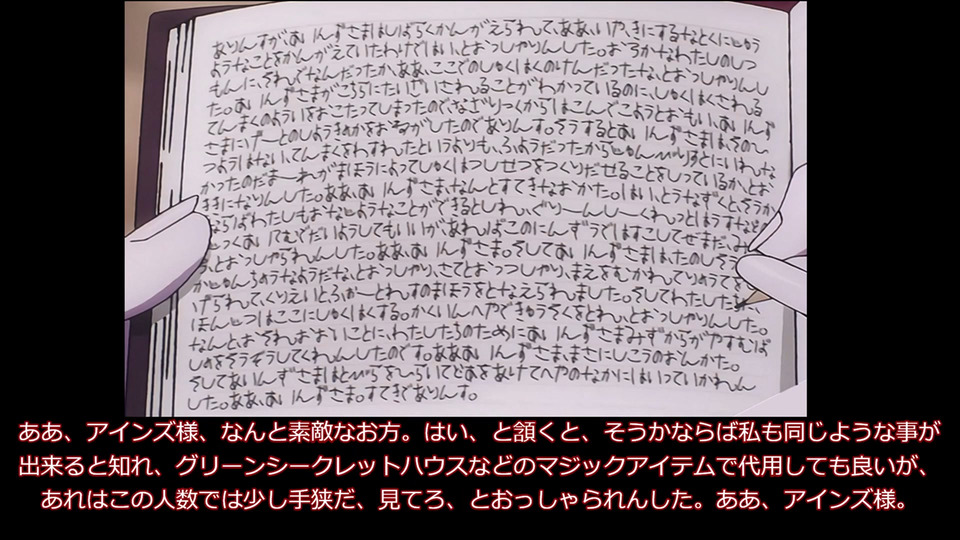 ありんすが、あいんずさまはしばらくかんがえられて、ああ、いや、きにするなとくにじゅう
ようなことをかんがえていたわけではい、とおっしゃりんした。おろかなわたしのしつ
もんに、それでなんだったか、ああ、ここでのしゅくはくのけんだったな、とおっしゃりんし
た。あいんずさまがこちらにたいざいされることがわかっているのに、しゅくはくされる
てんまくのよういをおこたってしまったので、なざりっくからはこんでこようとおもい、あいんず
さまにげーとのしようきょかをおねがしたのでありんす。そうするとあいんずさまは、そのひ
つようはない、てんまくをわすれたというよりも、ふようだったからじゅんびりすとにいれな
かったのだまーれがまほうによってしゅくはくしせつをつくりだせることをしっているか、とお
ききになりんした。ああ、あいんずさま、なんとすてきなおかた。はい、とうなずくと、そうか
ならばわたしもおなじようなことができるとしれ、ぐりーんしーくれっとはうすなど
じっくあいてむでだいようしてもいいが、あれはこのにんずうではすこしてぜまだ、み
ろ、とおっしゃられんした。ああ、あいんずさま。そしてあいんずさまは、たのしそう
じゅんちょうなようだな、とおっしゃり、さてとおっつしゃり、まえをむかわれてりょうてを
げられて、くりえいとふぉーとれすのまほうをとなえられました。そしてわたしたち
ほんじつはここにしゅくはくする。かくいんへやできゅうそくをとれ、とおっしゃりんした。
なんと、おそれおおいことに、わたしたちのためにあいんずさまみずからがやすむば
しょをそうぞうしてくれんしたのです。あああ、あいんずさま、まさにしこうのおんかた。
そしてあいんずさまはとびらをひらいてどあをあけてへやのなかにはいっていかれん
した。ああ、あいんずさま。すてきでありんす。
ああ、アインズ様、なんと素敵なお方。はい、と頷くと、そうかならば私も同じような事が
出来ると知れ、グリーンシークレットハウスなどのマジックアイテムで代用しても良いが、
あれはこの人数では少し手狭だ、見てろ、とおっしゃられんした。ああ、アインズ様。